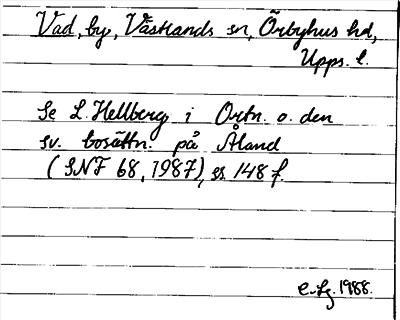 Vad, by, Västlands sn, Örbyhus hd,
Upps. l.
Se L. Hellberg i Ortn. o. den
sv. bosättn. på Åland
(SNF 68, 1987), s. 148 f.
1988.